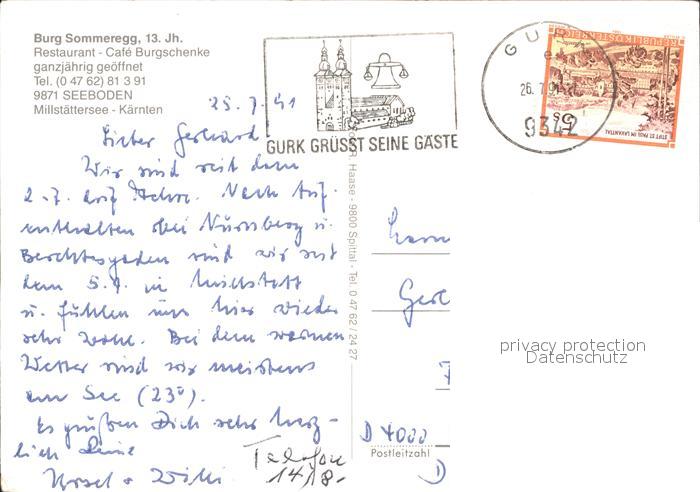 Burg Sommeregg, 13. Jh.
Restaurant - Café Burgschenke
ganzjährig geöffnet
Tel. (0 47 62) 81 3 91
9871 SEEBODEN
Millstättersee - Kärnten
25. 7. 91
Lieber Gerhard
Wir sind seit dem
2.7. auf Achse. Nach Auf-
enthalten bei Nürnberg u.
Berchtesgaden sind wir seit
dem 5.7. in Millstatt
u. fühlen uns hier wieder
sehr wohl. Bei dem warmen
Wetter sind wir meistens
am See (23°).
Es grüßen Dich sehr herz-
lich Deine
Ursel + Willi
Telefon
14/8-
GURK GRÜSST SEINE GÄSTE
GURK
26. 7. 91
9342
REPUBLIK ÖSTERREICH
STIFT ST. PAUL IM LAVANTTAL
S5
R. Haase - 9800 Spittal - Tel. 0 47 62 / 24 27
Herrn
Ger
D 4000
Postleitzahl
D
privacy protection
Datenschutz